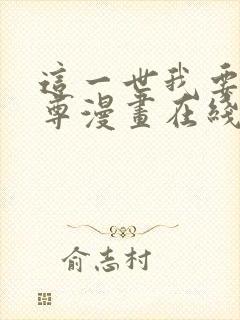 這一世我要
尊漫畫在綫
俞志村